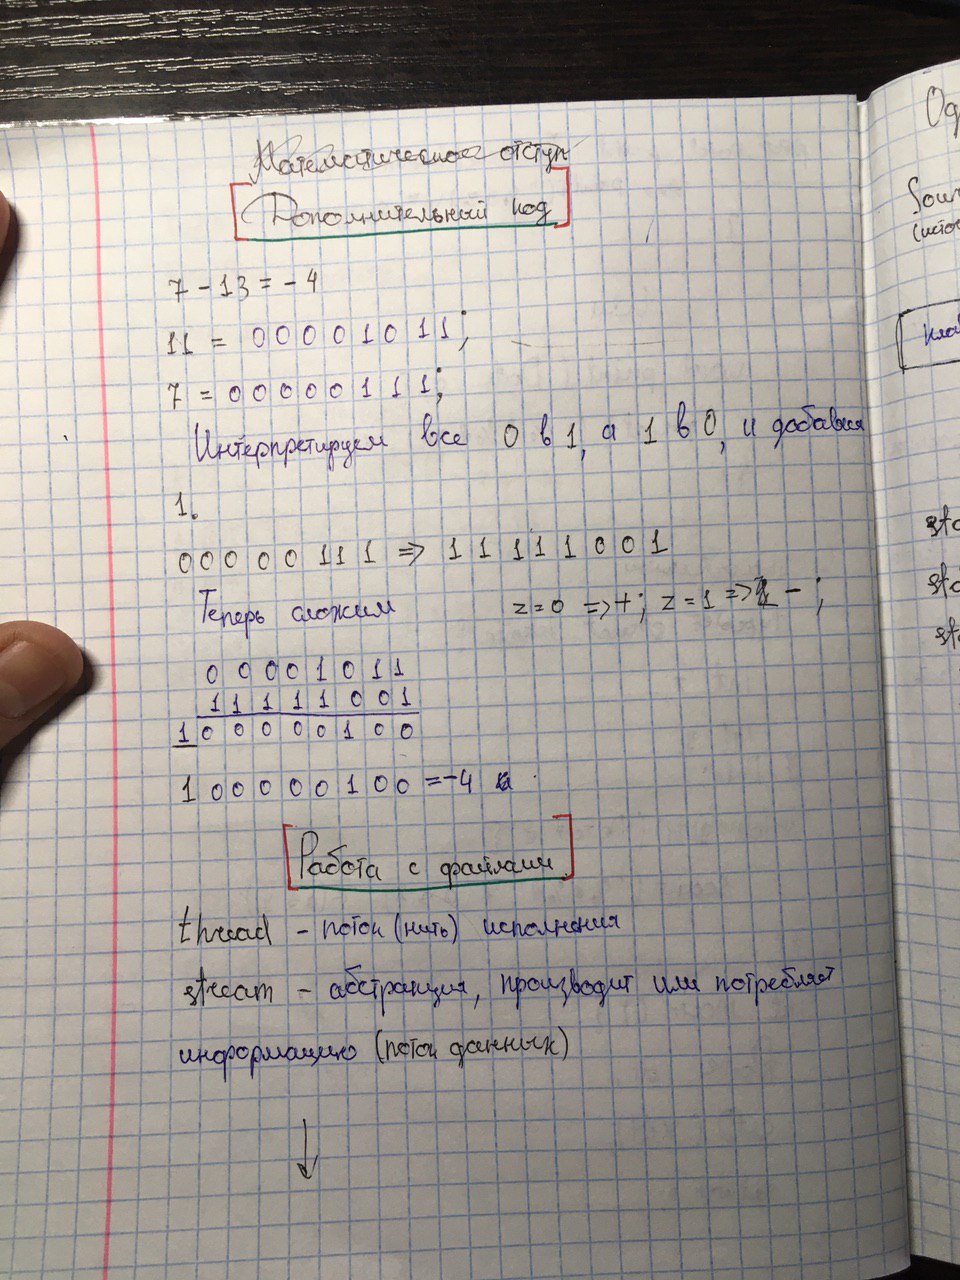 Математическое отступ
Дополнительный код
7 - 13 = - 4
11 = 00001011;
7 = 00000111;
Интерпретируем все 0 в 1, а 1 в 0, и добавим
1.
00000111 => 11111001
Теперь сложим z=0 => +; z=1 => -;
00001011
11111001
100000100
100000100 = -4
Работа с файлами
thread - поток (нить) исполнения
stream - абстракция, производит или потребляет
информацию (поток данных)